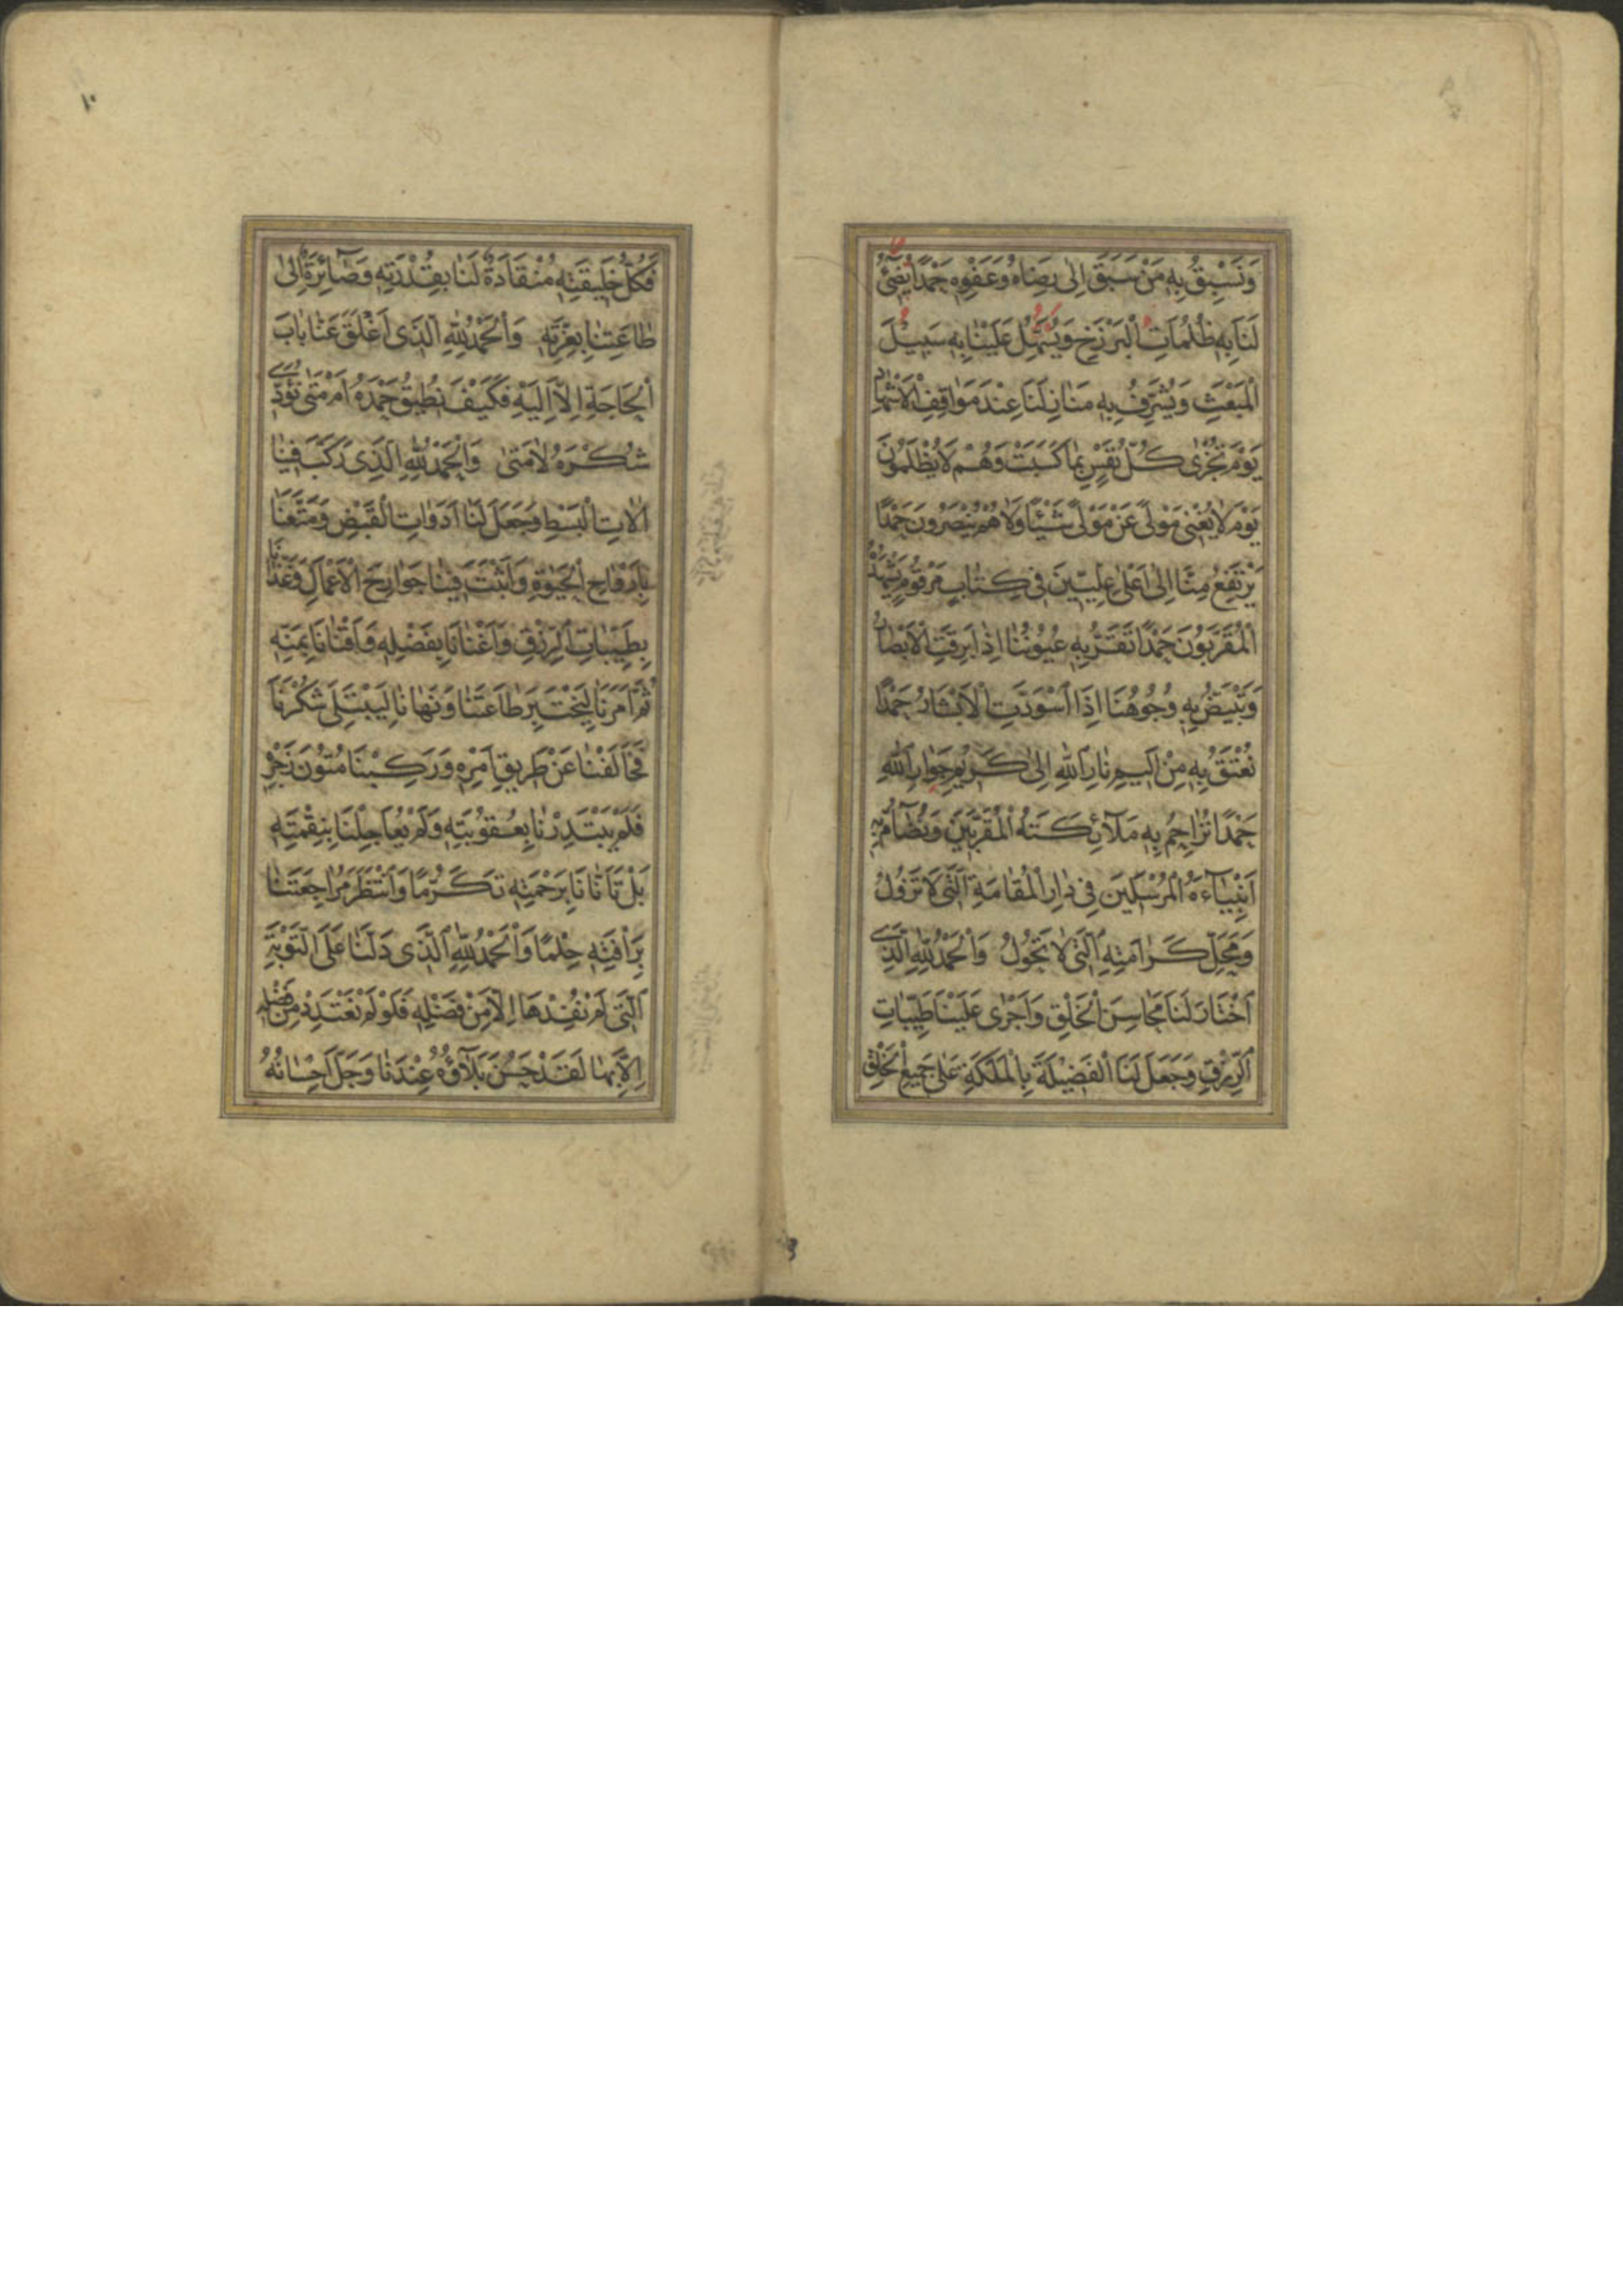 وَنَسْبِقُ بِهِ مَنْ سَبَقَ اِلٰى رِضَاهُ وَعَفْوِهِ حَمْدًا يُضِٓئُ
لَنَا بِهِ ظُلُمَاتِ الْبَرْزَخِ وَيُسَهِّلُ عَلَيْنَا بِهِ سَبِيْلَ
الْمَبْعَثِ وَيُشَرِّفُ بِهِ مَنَازِلَنَا عِنْدَ مَوَاقِفِ الْاَشْهَادِ
يَوْمَ تُجْزٰى كُلُّ نَفْسٍ بِمَا كَسَبَتْ وَهُمْ لَا يُظْلَمُوْنَ
يَوْمَ لَا يُغْنِى مَوْلًى عَنْ مَوْلًى شَيْئًا وَلَا هُمْ يُنْصَرُونَ حَمْدًا
يَرْتَفِعُ مِنَّا اِلٰى اَعْلٰى عِلِّيِّيْنَ فِى كِتَابٍ مَرْقُوْمٍ يَشْهَدُهُ
الْمُقَرَّبُوْنَ حَمْدًا تَقَرُّ بِهِ عُيُوْنُنَا اِذَا بَرِقَتِ الْاَبْصَارُ
وَتَبْيَضُّ بِهِ وُجُوْهُنَا اِذَا اسْوَدَّتِ الْاَبْشَارُ حَمْدًا
نُعْتَقُ بِهِ مِنْ اَلِيْمِ نَارِ اللّٰهِ اِلٰى كَرِيْمِ جَوَارِ اللّٰهِ
حَمْدًا نُزَاحِمُ بِهِ مَلَآئِكَتَهُ الْمُقَرَّبِيْنَ وَنُضَآمُّ بِهِ
اَنْبِيَآءَهُ الْمُرْسَلِيْنَ فِى دَارِ الْمُقَامَةِ الَّتِى لَا تَزُوْلُ
وَمَحَلِّ كَرَامَتِهِ الَّتِى لَا تَحُوْلُ وَالْحَمْدُ لِلّٰهِ الَّذِى
اخْتَارَ لَنَا مَحَاسِنَ الْخَلْقِ وَاَجْرٰى عَلَيْنَا طَيِّبَاتِ
الرِّزْقِ وَجَعَلَ لَنَا الْفَضِيْلَةَ بِالْمَلَكَةِ عَلٰى جَمِيعِ الْخَلْقِ
١٠
فَكُلُّ خَلِيقَتِهِ مُنْقَادَةٌ لَنَا بِقُدْرَتِهِ وَصَآئِرَةٌ اِلٰى
طَاعَتِنَا بِعِزَّتِهِ وَالْحَمْدُ لِلّٰهِ الَّذِى اَغْلَقَ عَنَّا بَابَ
الْحَاجَةِ اِلَّا اِلَيْهِ فَكَيْفَ نُطِيْقُ حَمْدَهُ اَمْ مَتٰى نُؤَدِّى
شُكْرَهُ لَا مَتٰى وَالْحَمْدُ لِلّٰهِ الَّذِى رَكَّبَ فِيْنَا
اٰلَاتِ الْبَسْطِ وَجَعَلَ لَنَا اَدَوَاتِ الْقَبْضِ وَمَتَّعَنَا
بِاَرْوَاحِ الْحَيٰوةِ وَاَثْبَتَ فِيْنَا جَوَارِحَ الْاَعْمَالِ وَغَذَّانَا
بِطَيِّبَاتِ الرِّزْقِ وَاَغْنَانَا بِفَضْلِهِ وَاَقْنَانَا بِمَنِّهِ
ثُمَّ اَمَرَنَا لِيَخْتَبِرَ طَاعَتَنَا وَنَهَانَا لِيَبْتَلِىَ شُكْرَنَا
فَخَالَفْنَا عَنْ طَرِيْقِ اَمْرِهِ وَرَكِبْنَا مُتُوْنَ زَجْرِهِ
فَلَمْ يَبْتَدِرْنَا بِعُقُوْبَتِهِ وَلَمْ يُعَاجِلْنَا بِنِقْمَتِهِ
بَلْ تَاَنَّانَا بِرَحْمَتِهِ تَكَرُّمًا وَانْتَظَرَ مُرَاجَعَتَنَا
بِرَاْفَتِهِ حِلْمًا وَالْحَمْدُ لِلّٰهِ الَّذِى دَلَّنَا عَلَى التَّوْبَةِ
الَّتِى لَمْ نُفِدْهَا اِلَّا مِنْ فَضْلِهِ فَلَوْ لَمْ نَعْتَدِدْ مِنْ فَضْلِهِ
اِلَّا بِهَا لَقَدْ حَسُنَ بَلَآؤُهُ عِنْدَنَا وَجَلَّ اِحْسَانُهُ